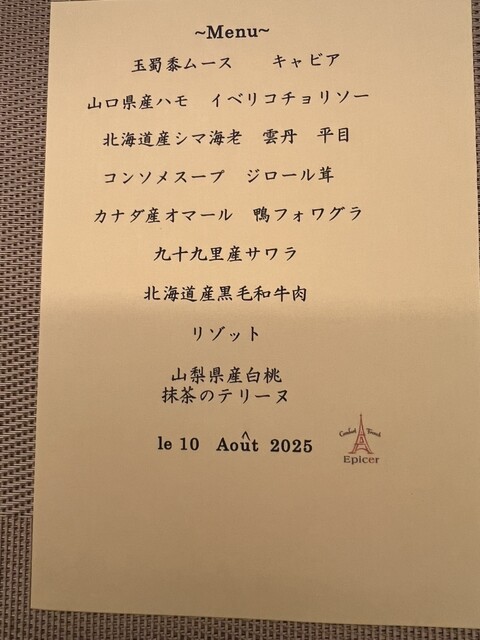 ~Menu~
玉蜀黍ムース　キャビア
山口県産ハモ　イベリコチョリソー
北海道産シマ海老　雲丹　平目
コンソメスープ　ジロール茸
カナダ産オマール　鴨フォワグラ
九十九里産サワラ
北海道産黒毛和牛肉
リゾット
山梨県産白桃
抹茶のテリーヌ
le 10 Août 2025
Epicer